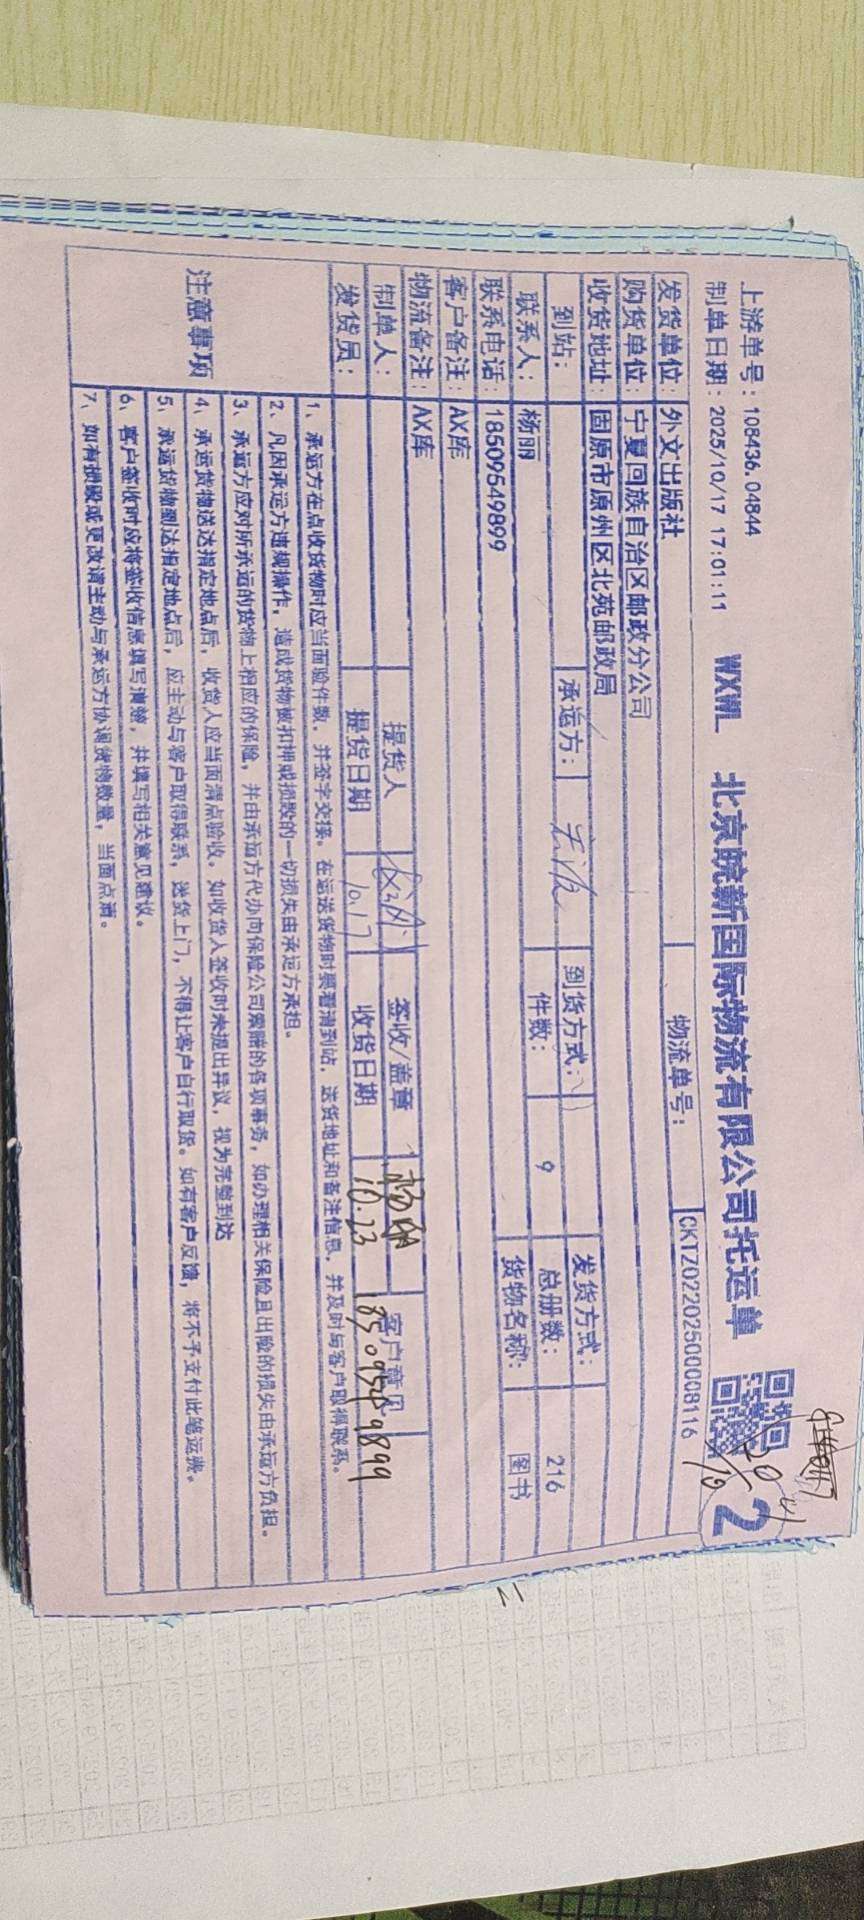 上游单号：108436.04844
制单日期：2025/10/17 17:01:11
WXWL 北京皖新国际物流有限公司托运单
2
发货单位：外文出版社
物流单号：CKTZ02202500008116
购货单位：宁夏回族自治区邮政分公司
收货地址：固原市原州区北苑邮政局
到站： 承运方： 到货方式： 发货方式：
联系人：杨丽 件数：9 总册数：216
联系电话：18509549899 货物名称：图书
客户备注：AX库
物流备注：AX库
制单人： 提货人 签收/盖章 客户意见
发货员： 提货日期 10.17 收货日期 10.23 18509549899
注意事项
1、承运方在点收货物时应当面验件数，并签字交接。在运送货物时要看清到站，送货地址和备注信息，并及时与客户取得联系。
2、凡因承运方违规操作，造成货物被扣押或损毁的一切损失由承运方承担。
3、承运方应对所承运的货物上相应的保险，并由承运方代办向保险公司索赔的各项事务，如办理相关保险且出险的损失由承运方负担。
4、承运货物送达指定地点后，收货人应当面清点验收。如收货人签收时未提出异议，视为完整到达
5、承运货物到达指定地点后，应主动与客户取得联系，送货上门，不得让客户自行取货。如有客户反馈，将不予支付此笔运费。
6、客户签收时应将签收信息填写清楚，并填写相关意见建议。
7、如有损毁或更改请主动与承运方协调货物数量，当面点清。